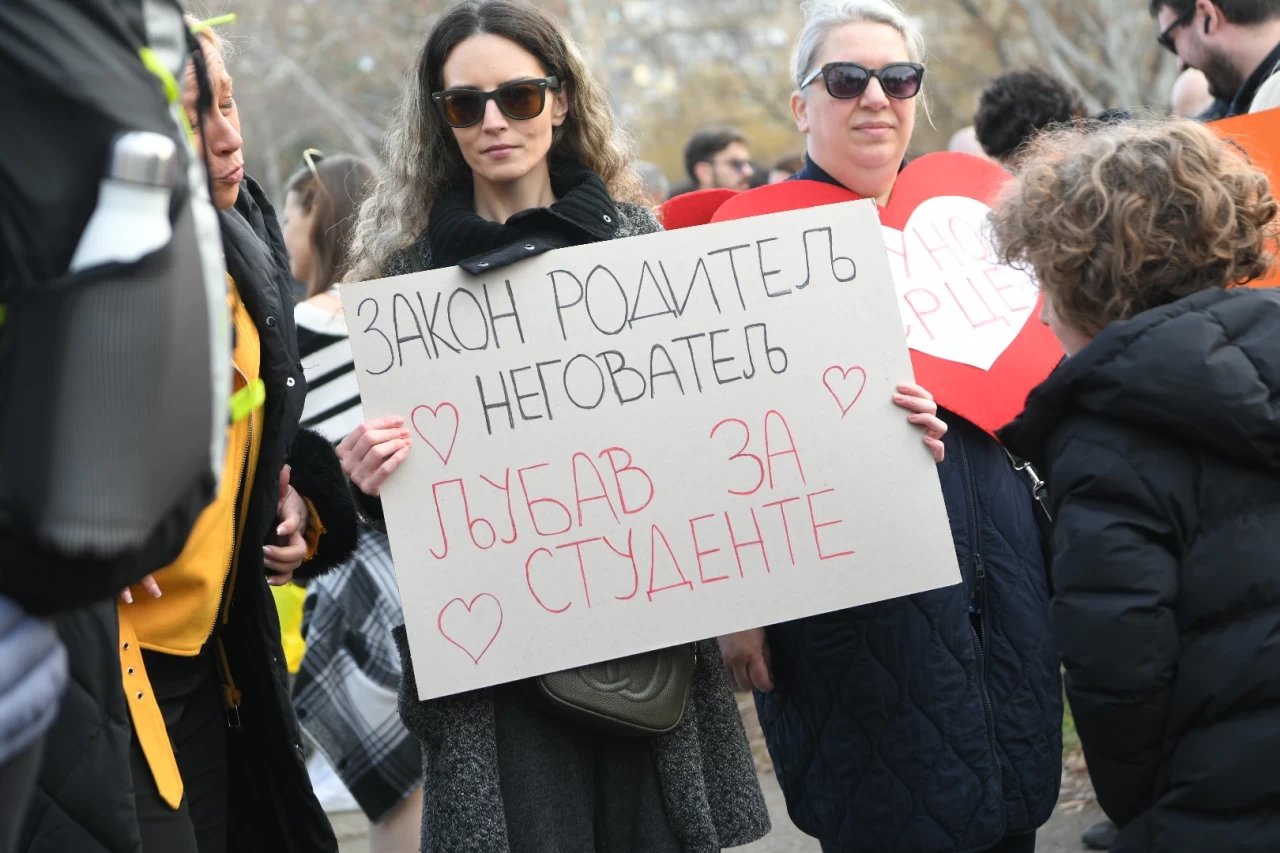 ЗАКОН РОДИТЕЉ
НЕГОВАТЕЉ
ЉУБАВ ЗА
СТУДЕНТЕ